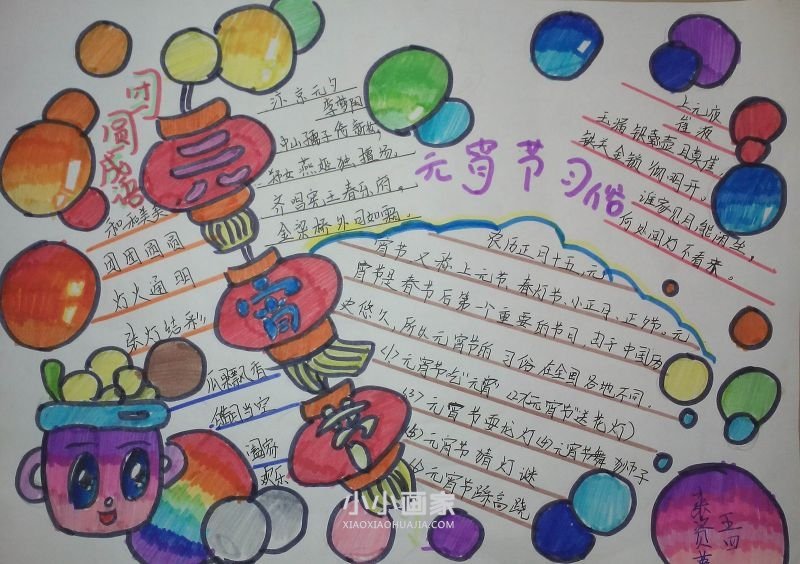 团圆成语
和和美美
团团圆圆
灯火通明
张灯结彩
瓜果飘香
当空
阖家
欢乐
元宵节
汴京元夕
李梦阳
中山孺子倚新妆,
郑女燕姬独擅场。
齐唱宪王春乐府。
金梁桥外月如霜。
元宵节习俗
农历正月十五,元
宵节,又称上元节、春灯节、小正月、正夕节,元
宵节是春节后第一个重要的节日,由于中国历
史悠久,所以元宵节的习俗在全国各地不同.
(1)元宵节“吃”元宵 (2)元宵节“送花灯)
(3)元宵节耍龙灯(4)元宵节舞狮子
(5)元宵节猜灯谜
(6)元宵节踩高跷
上元夜
崔液
玉漏 铁壶且莫催,
铁关金锁彻明开,
谁家见月能闲坐,
何处闻灯不看来。
五四
小小画家
XIAOXIAOHUAJIA.COM